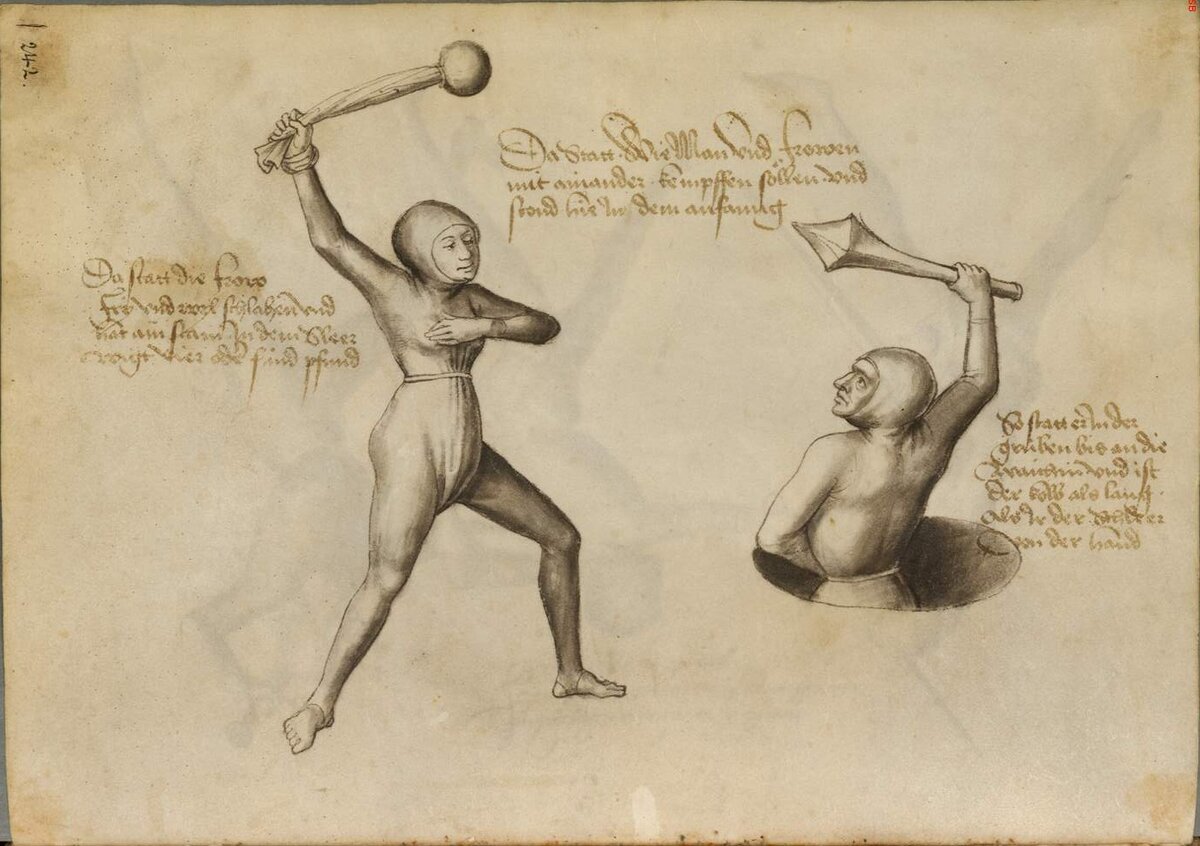 242.
Da Statt Wie Man Vnd Frowen
mit ainander kempffen söllen vnd
stond hie In dem anfang
Da statt die frow
fry vnd wyl schlahen vnd
hat ain stain In dem Sleer
wigt vier oder fünd pfund
So statt er In der
gruben bis an die
waichin vnd ist
der kolb als lang
Als Ir der Schleer
von der hand